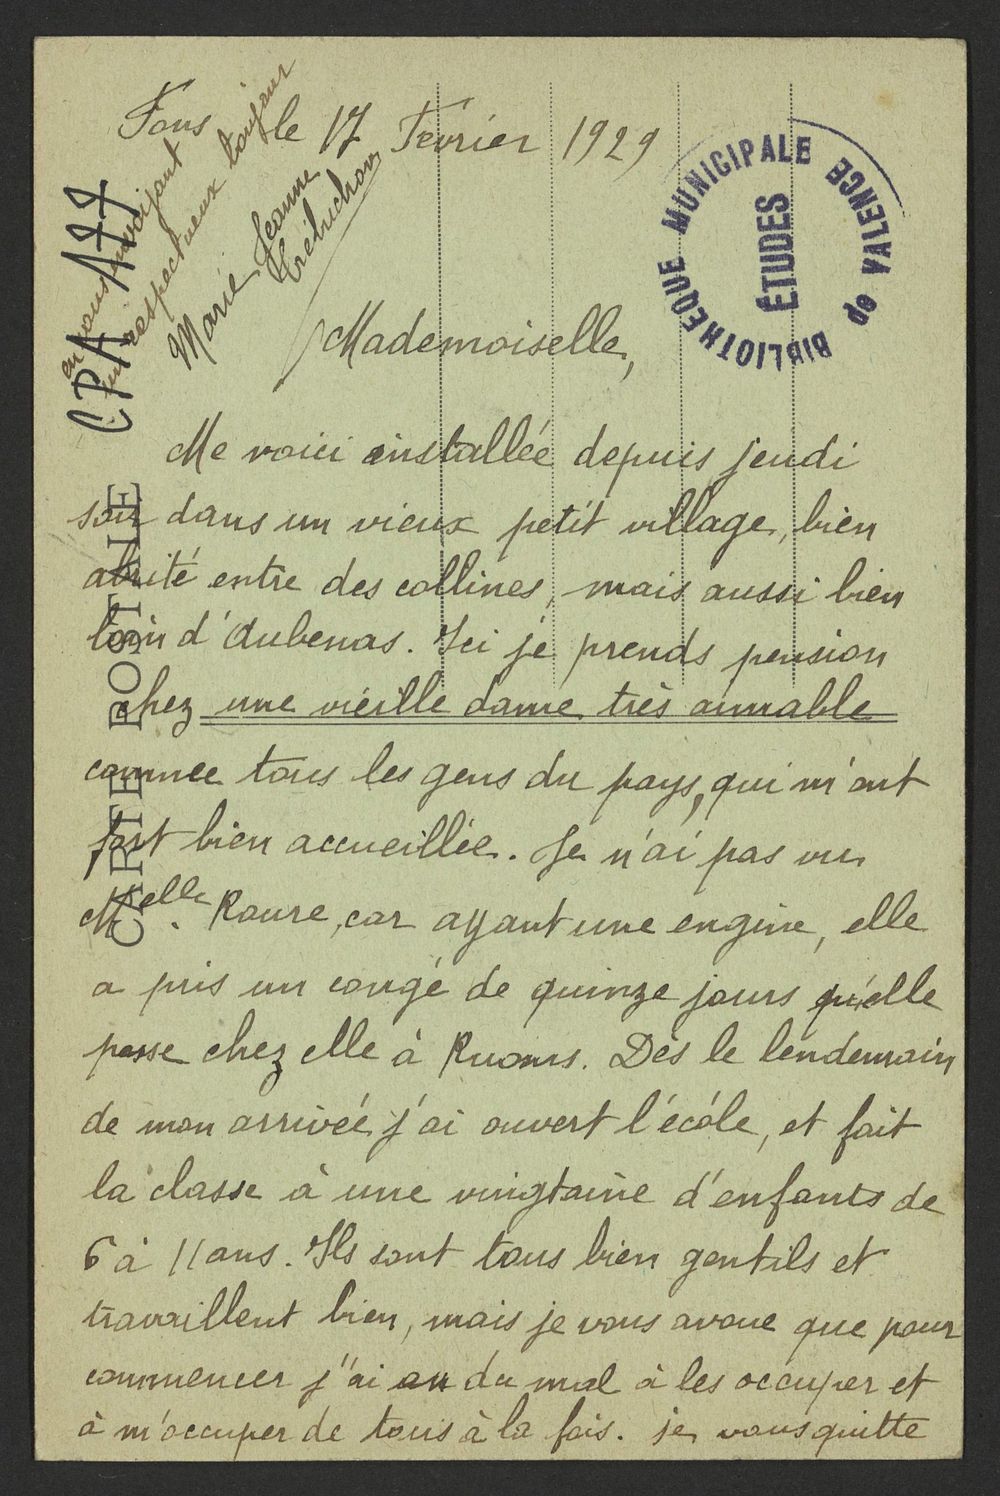 Fons le 17 Février 1929
Mademoiselle,
Me voici installée depuis jeudi
soir dans un vieux petit village, bien
abrité entre des collines, mais aussi bien
loin d'Aubenas. Ici je prends pension
chez une vieille dame très aimable
comme tous les gens du pays, qui m'ont
fort bien accueillée. Je n'ai pas vu
Melle. Roure, car ayant une engine, elle
a pris un congé de quinze jours qu'elle
passe chez elle à Ruoms. Dès le lendemain
de mon arrivée j'ai ouvert l'école, et fait
la classe à une vingtaine d'enfants de
6 à 11 ans. Ils sont tous bien gentils et
travaillent bien, mais je vous avoue que pour
commencer j'ai eu du mal à les occuper et
à m'occuper de tous à la fois. je vous quitte
en vous envoyant
un respectueux bonjour
Marie Jeanne
CPA A 77
CARTE POSTALE
BIBLIOTHEQUE MUNICIPALE DE VALENCE
ÉTUDES